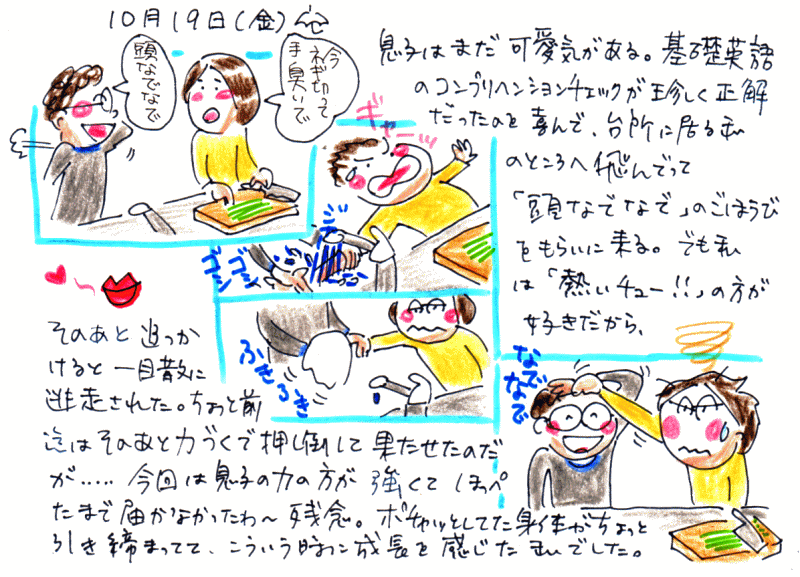 10月19日(金)
頭なでなで
今ネギ切って
手臭いで
息子はまだ可愛気がある。基礎英語
のコンプリヘンションチェックが珍しく正解
だったのを喜んで、台所に居る私
のところへ飛んでって
「頭なでなで」のごほうび
をもらいに来る。でも私
は「熱いチュー!!」の方が
好きだから、
ギャーッ
ジャー
ゴシゴシ
ふきふき
なでなで
そのあと追っか
けると一目散に
逃走された。ちょっと前
迄はそのあと力づくで押し倒して果たせたのだ
が‥‥‥今回は息子の力の方が強くてほっぺ
たまで届かなかったわ〜残念。ポチャッとしてた身体がちょっと
引き締まってて、こういう時に成長を感じたまいでした。